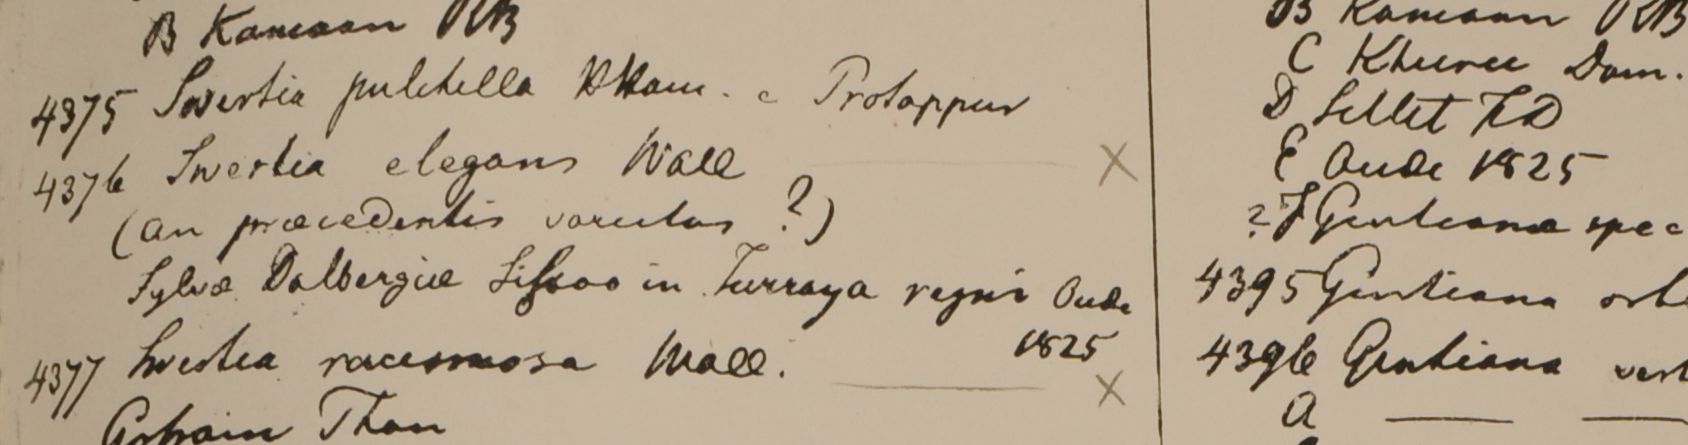 B Kamaon RB
4375 Swertia pulchella BHam. e Protappur
4376 Swertia elegans Wall
(an præcedentis varietas ?)
Sylvæ Dalbergiæ Sissoo in Turraya regni Oude
1825
4377 Swertia racemosa Wall.
Gosain Than
B Kamaon RB
C Kheree Dom.
D Sillet FD
E Oude 1825
? F Gentianæ spec
4395 Gentiana
4396 Gentiana
A